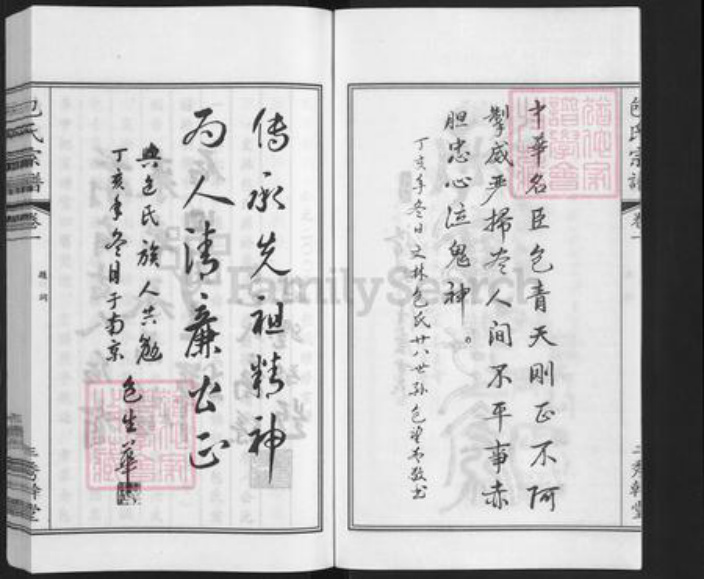 包氏宗譜
卷一
中華名臣包青天剛正不阿
掣威严掃尽人间不平事赤
胆忠心泣鬼神。
丁亥年冬日文林包氏廿八世孙包
敬书
传承先祖精神
为人清廉公正
与包氏族人共勉
丁亥年冬月于南京
包生華
包氏宗譜
卷一
題詞
三秀幹堂
FamilySearch